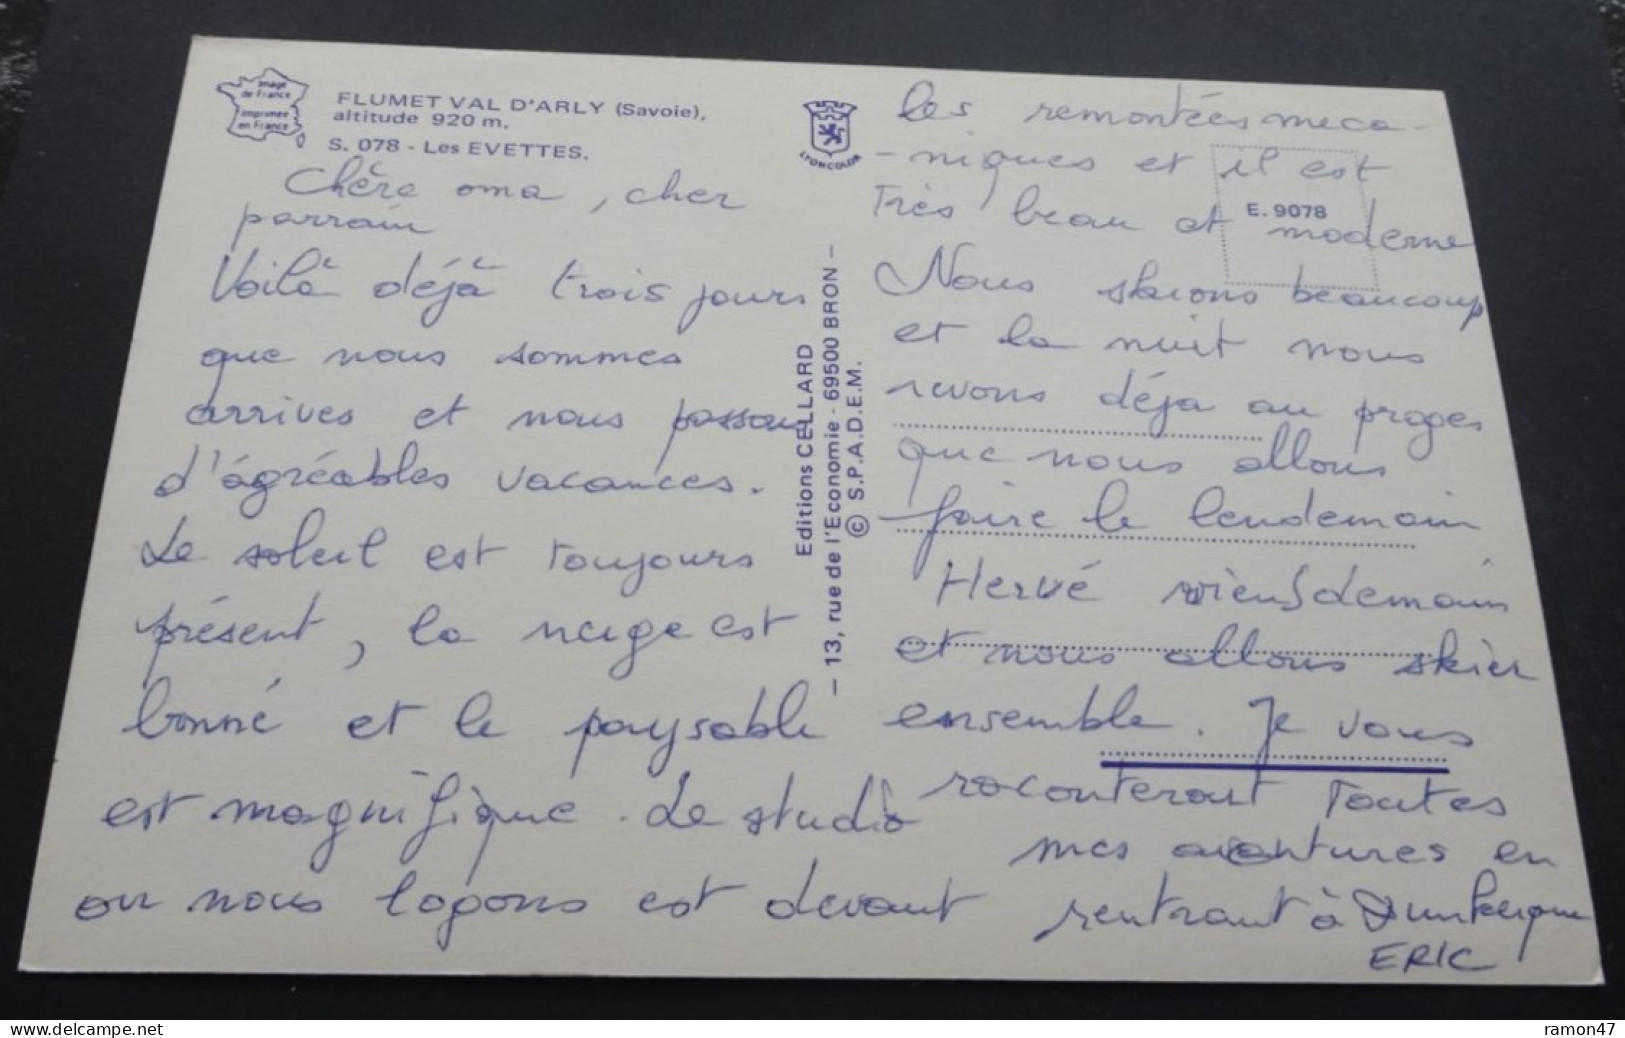 Image
de France
imprimée
en France
FLUMET VAL D'ARLY (Savoie),
altitude 920 m.
S. 078 - Les EVETTES.
LYONCOLOR
E. 9078
Editions CELLARD
- 13, rue de l'Economie - 69500 BRON -
© S.P.A.D.E.M.
Chère oma, cher
parrain
Voilà déjà trois jours
que nous sommes
arrivés et nous passons
d'agréables vacances.
Le soleil est toujours
présent, la neige est
bonne et le paysable
est magnifique. Le studio
ou nous logons est devant
les remontées meca-
-niques et il est
Très beau et moderne
Nous skions beaucoup
et la nuit nous
revons déja au proges
que nous allons
faire le lendemain
Hervé viens demain
et nous allons skier
ensemble. Je vous
raconterait toutes
mes aventures en
rentrant à Dunkerque
ERIC
www.delcampe.net
ramon47